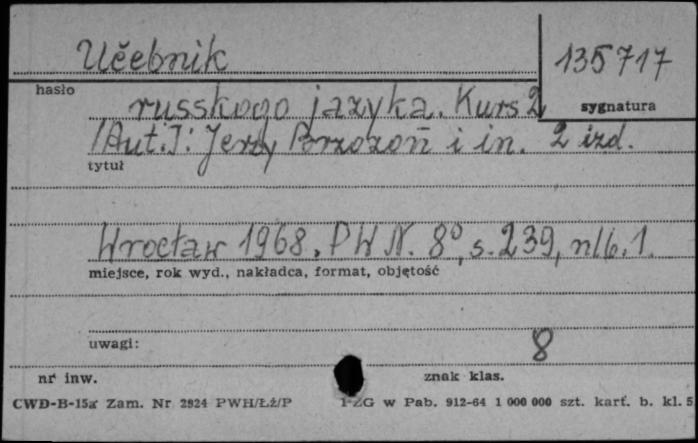 Učebnik
135717
hasło
russkogo jazyka. Kurs 2
sygnatura
[Aut.]: Jerzy i in. 2 izd.
tytuł
Wrocław 1968, PWN. 8°, s. 239, nlb. 1.
miejsce, rok wyd., nakładca, format, objętość
uwagi:
8
nr inw.
znak klas.
CWD-B-15a Zam. Nr 2924 PWH/Łź/P ZG w Pab. 912-64 1 000 000 szt. kart. b. kl. 5